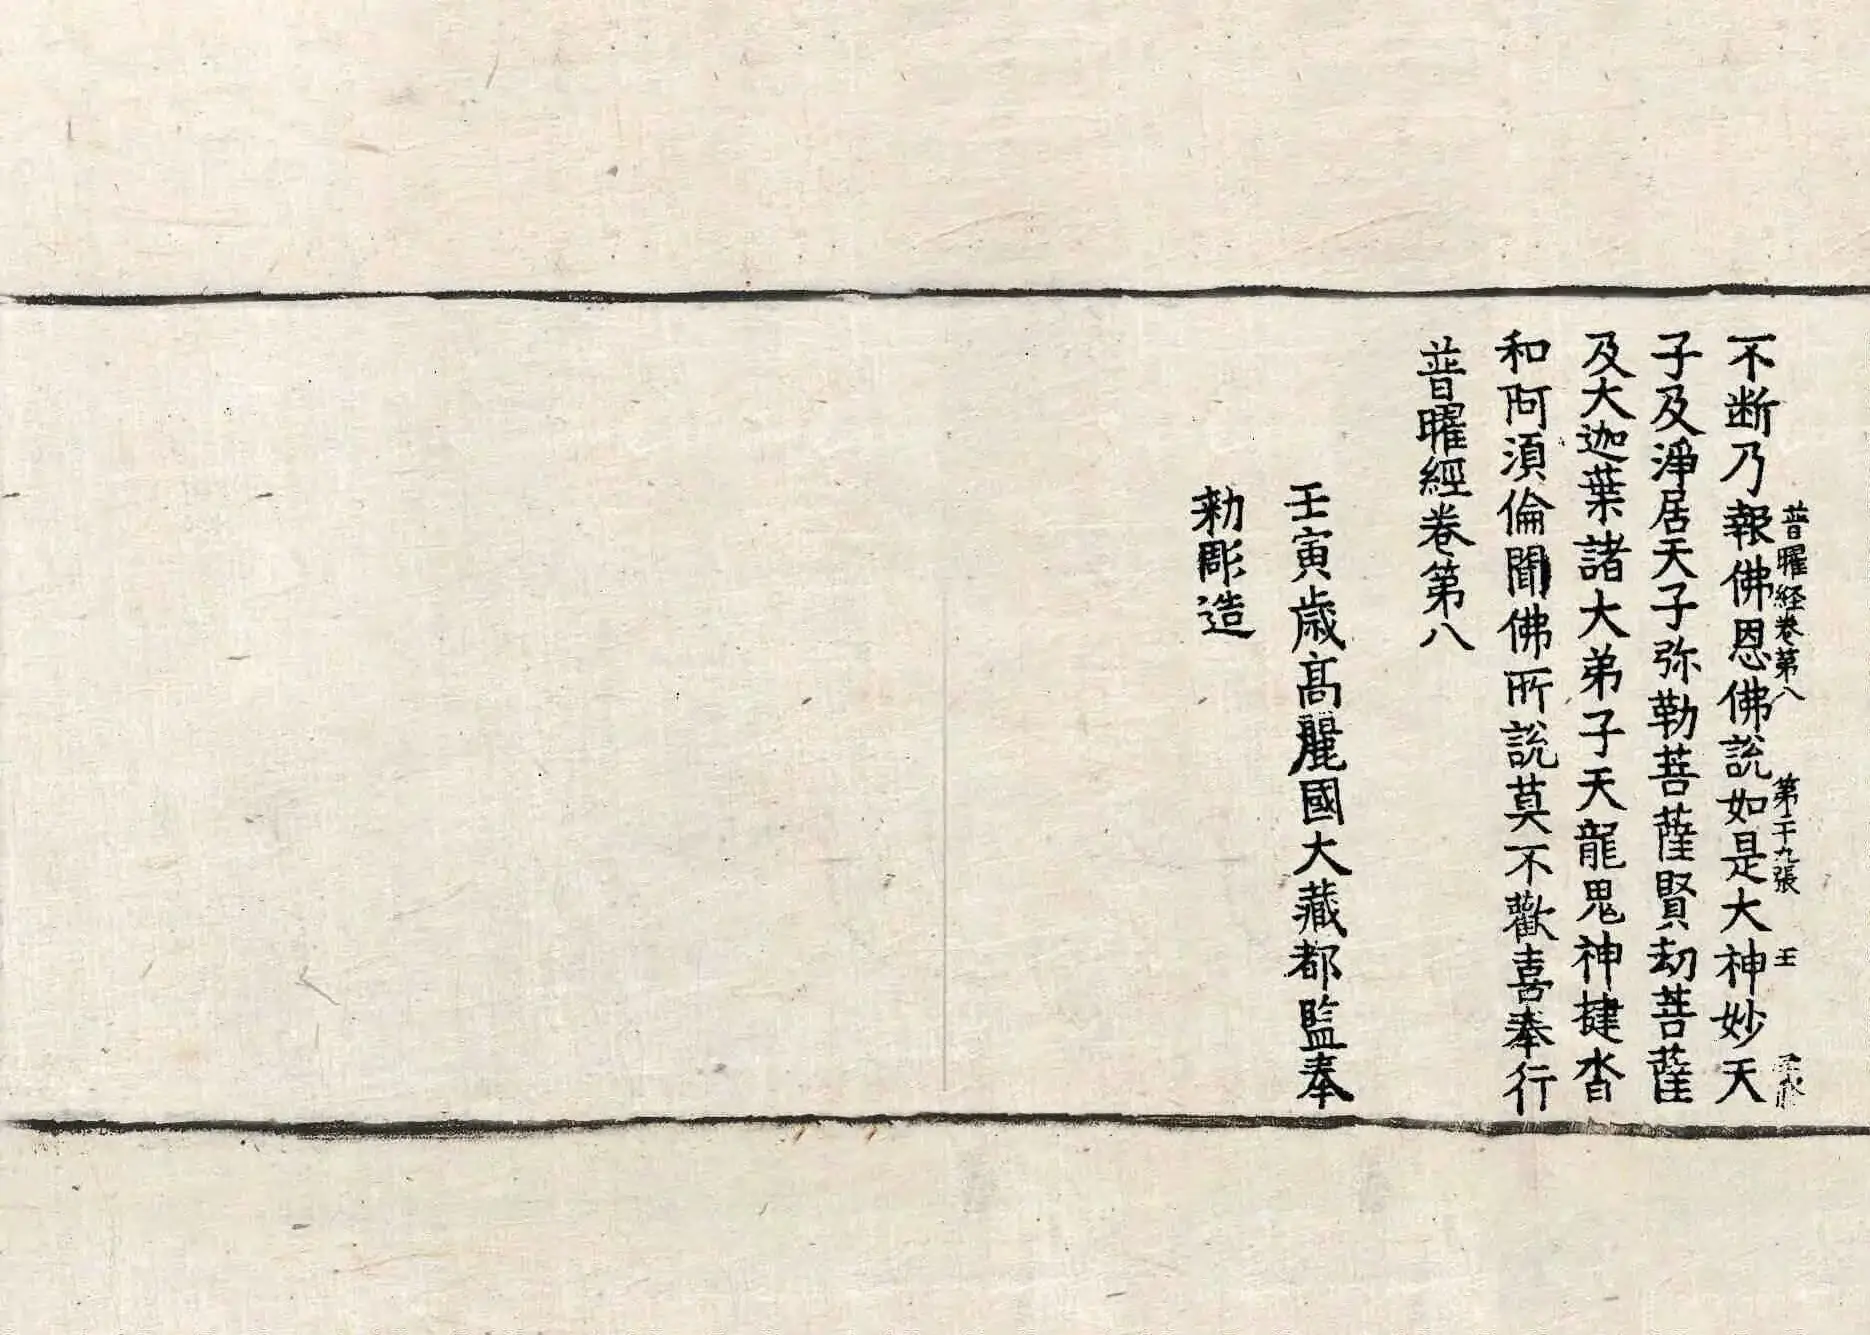 普曜経卷第八　第二十九張　王
不断乃報佛恩佛說如是大神妙天
子及淨居天子弥勒菩薩賢劫菩薩
及大迦葉諸大弟子天龍鬼神揵沓
和阿湏倫聞佛所說莫不歡喜奉行
普曜經卷第八
壬寅歲高麗國大藏都監奉
勑彫造